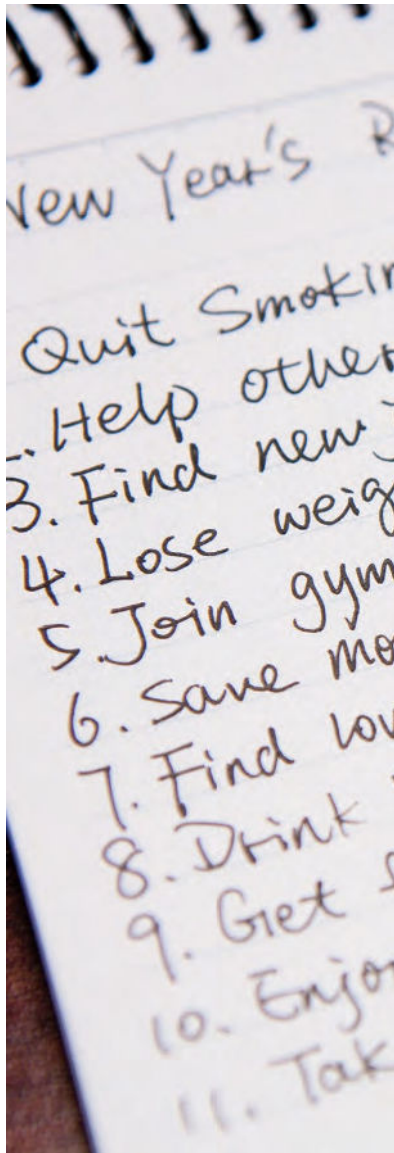 New Year's R
Quit Smokin
. Help other
3. Find new j
4. Lose weig
5. Join gym
6. Save mo
7. Find lov
8. Drink
9. Get s
10. Enjo
11. Tak